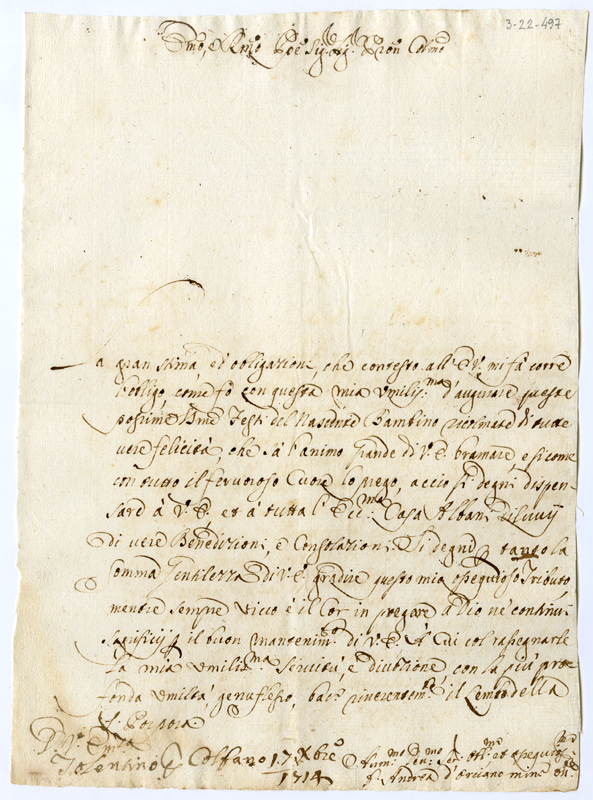 3-22-497
Em̃o, e Rmõ Pñe Sig.r Sig.r Pron Colmõ
a gran stima, ed obligazione, che conf esso all' E. V. mi fà corre
l'obligo, come fò con questa mia Umiliss.ma d'augurare queste
prossime SSme Feste del Nascente Bambino ricolmate di tutte
vere felicità, che sà l'animo grande di V. E. bramare, e si come
con tutto il fervoroso Cuore lo prego, acciò si degni dispen-
sare à V. E. et à tutta l'Ecc.ma Casa Albani Diluvij
di vere Benedizioni, e Consolazioni. Si degni p tanto la
somma Gentilezza di V. E. gradire questo mio ossequioso Tributo,
mentre sempre vivo è il Cor in pregare a Dio ne continui
Sagrificij p il buon Mantenim.to di V. E. À Cui col rassegnarle
la mia Umiliss.ma Servitù, e divozione con la più pro-
fonda Umiltà, genuflesso, bacio riverentem.te il Lembo della
S. Porpora
D. V. Em.za
Tolentino p Colfano 17 Xbre
1714
Hum.mo Dev.mo Ser. Obl.mo et ossequios.mo
F. Andrea d'Orciano min. Oss.